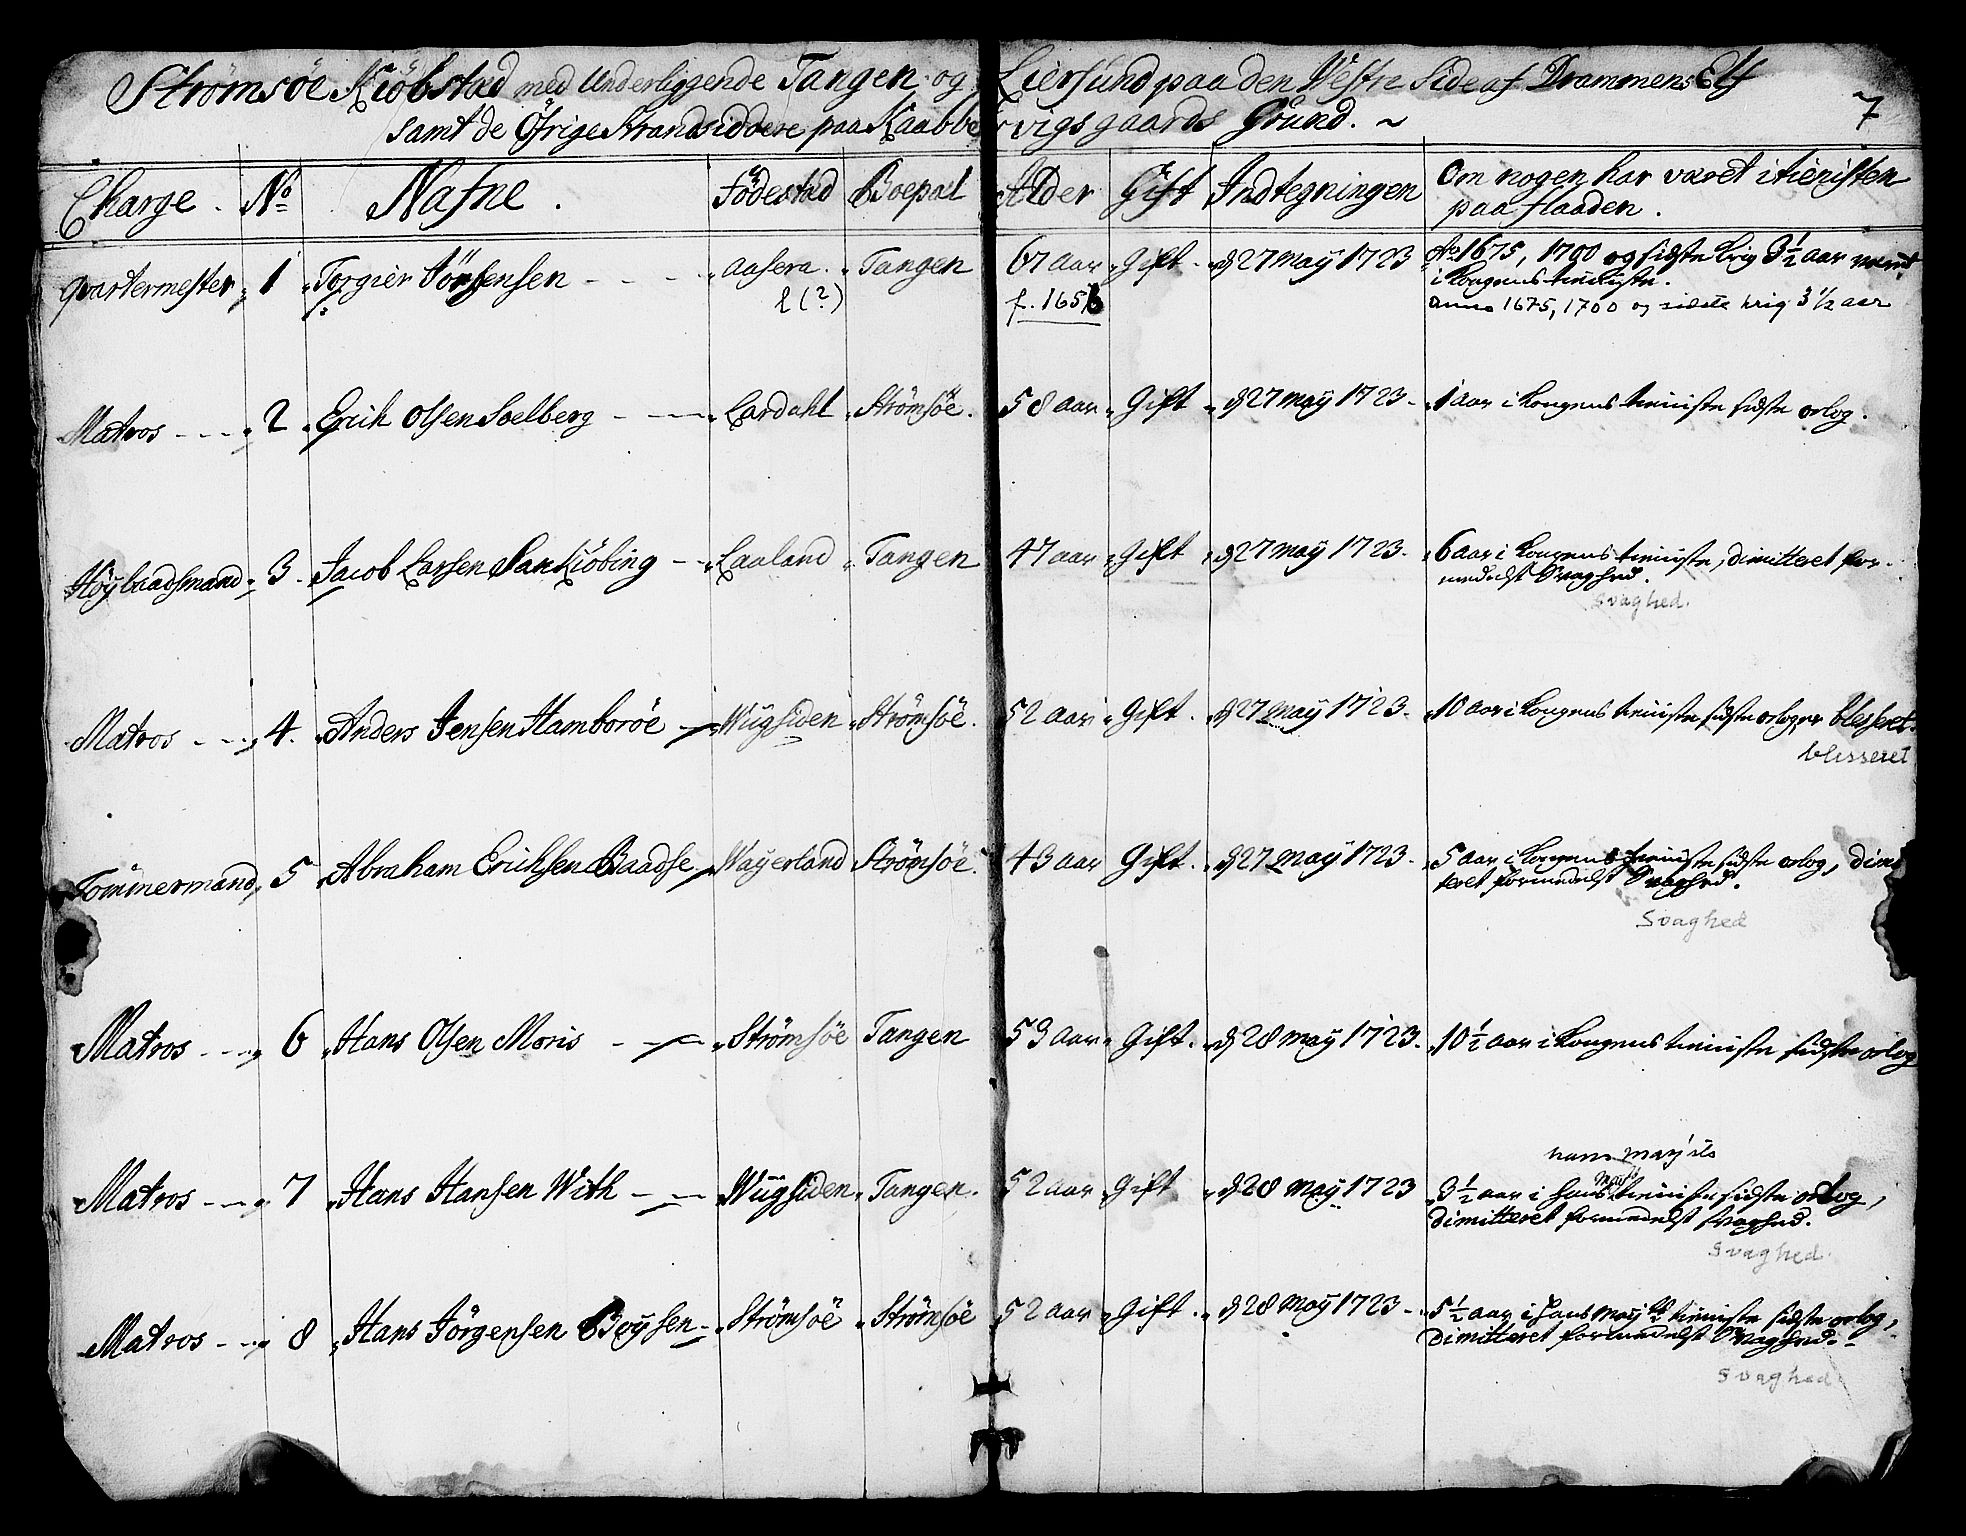 Strömsöe Kiöbstad med Underliggende Tangen og Liersund paa den Vestre Side af Drammens Elf
samt de Öfrige Strandsiddere paa Kaabbervigs gaards Grund. ~ 7
Charge. No Nafne. Födestad Boepæl Alder Gift Indtegningen Om nogen har været i tienisten
paa flaaden.
Qvartermester 1 Torgier Jörgensen - - - Aasera. Tangen 67 aar Gift d 27 maÿ 1723 Ao 1675, 1700 og sidste krig 3½ aar været
i Kongens tieniste.
l (?) f. 1656 anno 1675, 1700 og sidste krig 3 1/2 aar
Matros - - - 2 Erich Olsen Soelberg - - - Lardahl Strömsöe. 58 aar Gift d 27 maÿ 1723. 1 aar i Kongens tieniste sidste orlog.
Höÿbaadsmand 3. Jacob Larsen Sankiöbing - - Laaland Tangen 47 aar Gift d 27 maÿ 1723. 6 aar i Kongens tieniste, dimitteret for-
medelst Svaghed.
Svaghed.
Matros - - - 4. Anders Jensen Hamboröe - Wügsiden Strömsöe. 52 aar Gift. d 27 maÿ 1723. 10 aar i Kongens tieniste sidste orlog, er blesseret.
blesseret
Tömmermand 5 Abraham Erichsen Baadse Waÿerland Strömsöe. 43 aar Gift. d 27 maÿ 1723. 5 aar i Kongens tieniste sidste orlog, dimi
teret formedelst Svaghed.
Svaghed
Matros - - - 6 Hans Olsen Moris - - Strömsöe Tangen 53 aar Gift. d 28 maÿ 1723. 10½ aar i Kongens tieniste sidste orlog
hans maÿ
Matros - - 7 Hans Hansen With - - Wügsiden Tangen. 52 aar Gift d 28 maÿ 1723 3½ aar i hans Maÿ tieniste sidste orlog,
dimitteret formedelst svaghed.
Svaghed.
Matros - - 8 Hans Jörgensen Boÿsen - Strömsöe Strömsöe 52 aar Gift. d 28 Maÿ 1723 - 5½ aar i hans maÿ tts tieniste sidste orlog,
dimitteret formedelst Svaghed.
Svaghed